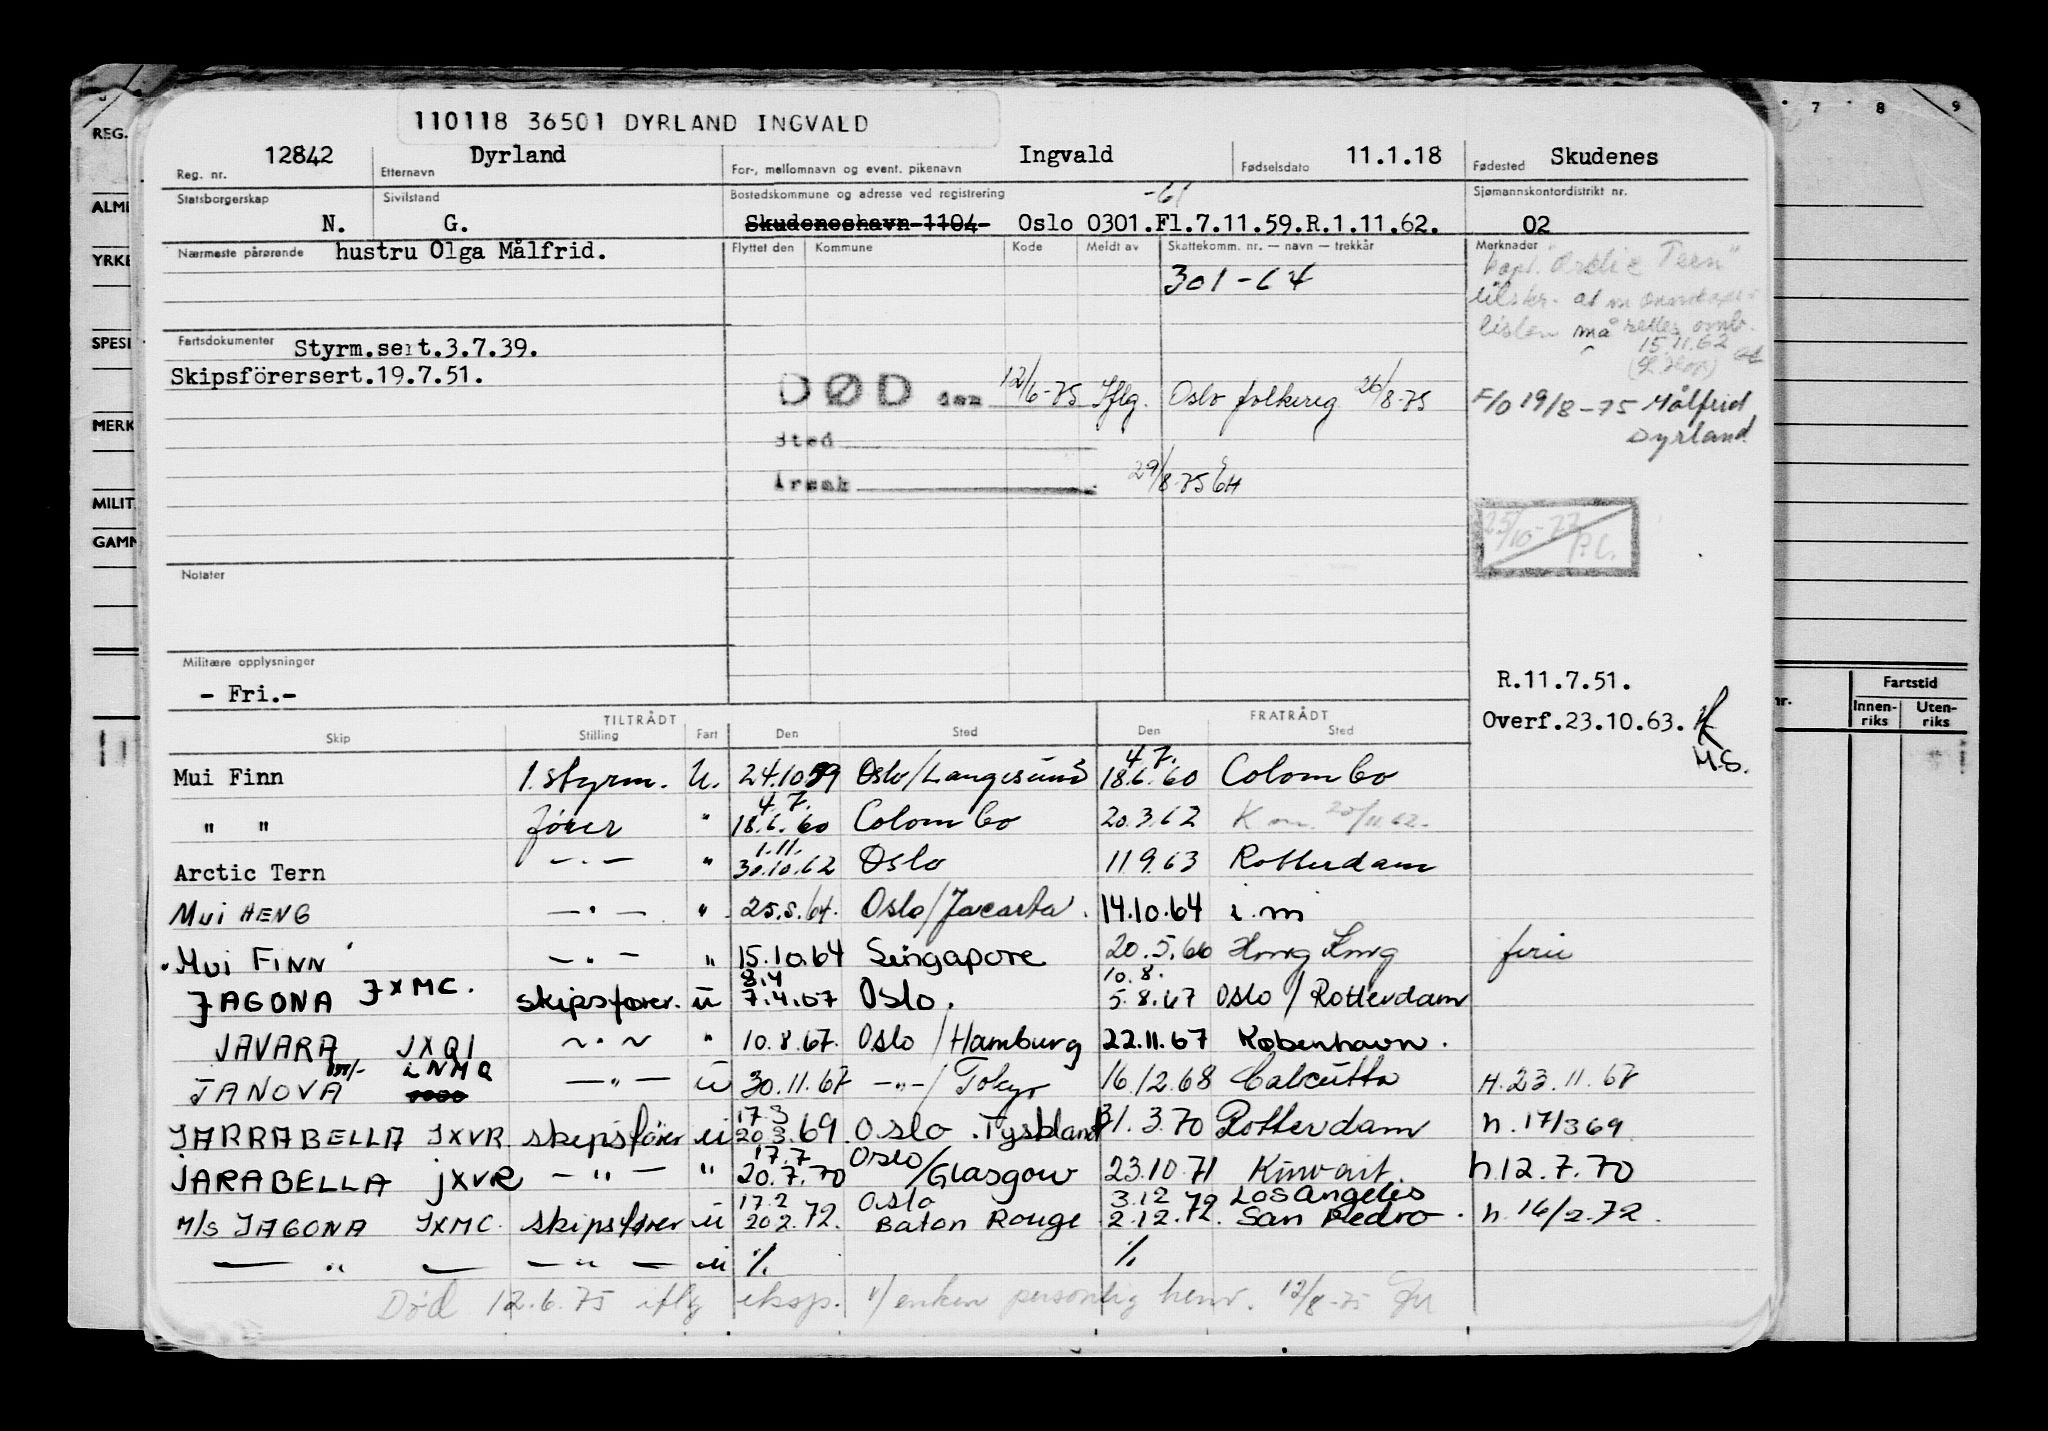 7 8 9
110118 36501 DYRLAND INGVALD
REG.
12842 Dyrland Ingvald 11.1.18 Skudenes
Reg. nr. Etternavn For-, mellomnavn og event. pikenavn Fødselsdato Fødested
Statsborgerskap Sivilstand Bostedskommune og adresse ved registrering -61 Sjømannskontordistrikt nr.
ALM
N. G. Skudeneshavn 1104- Oslo 0301.Fl.7.11.59.R.1.11.62. 02
Nærmeste pårørende hustru Olga Målfrid. Flyttet den Kommune Kode Meldt av Skattekomm. nr. — navn — trekkår Merknader
YRKE
301-64
kapt. "Arctic Tern"
listen må rettes omb.
15.11.62
SPESI
Fartsdokumenter Styrm.sert.3.7.39.
Skipsförersert.19.7.51.
DØD den 12/6-75 Iflg. Oslo folkereg 26/8-75
F/O 19/8-75 Målfrid
Dyrland
MERK
Sted
Årsak 29/8-75 EH
MILIT.
GAMM
25/10-77 P.C.
Notater
Militære opplysninger
- Fri.-
R.11.7.51.
Overf.23.10.63.
M.S.
Fartstid
nr. Innen-riks Uten-riks
TILTRÅDT FRATRÅDT
Skip Stilling Fart Den Sted Den Sted
4.7.
Mui Finn 1. styrm. U. 24.10 59 Oslo/Langesund 18.6.60 Colombo
4.7.
" " fører " 18.6.60 Colombo 20.3.62 K m. 20/11.62.
1.11.
Arctic Tern —.— " 30.10.62 Oslo 11 9.63 Rotterdam
MUI HENG —.— " 25.5./64. Oslo/Jacarta. 14.10.64 i.m
MUI FINN —.— " 15.10.64 Singapore 20.5.66 Hong Kong ferie
8.4 10.8.
JAGONA JXMC. skipsfører. u 7.4.67 Oslo. 5.8.67 Oslo / Rotterdam
JAVARA JXQI ~.~ " 10.8.67. Oslo / Hamburg 22.11.67 København.
m/- LNMQ
JANOVA —"— u 30.11.67 —"—/ Tokyo 16/2.68 Calcutta H.23.11.67
17.3
JARRABELLA JXVR skipsfører u 20.3.69. Oslo. Tyskland 31.3.70 Rotterdam h. 17/3 69.
17.7 Oslo
JARABELLA JXVR — " — " 20.7.70 /Glasgow 23.10.71 Kuwait. h 12.7.70
17.2 Oslo 3.12 Los Angeles
M/S JAGONA JXMC. skipsfører u 20 2.72. Baton Rouge 2.12.72. San Pedro. h. 16/2.72.
— " — — " — u %. %.
Død 12.6.75 iflg eksp. v/ enken personlig henv. 12/8-75